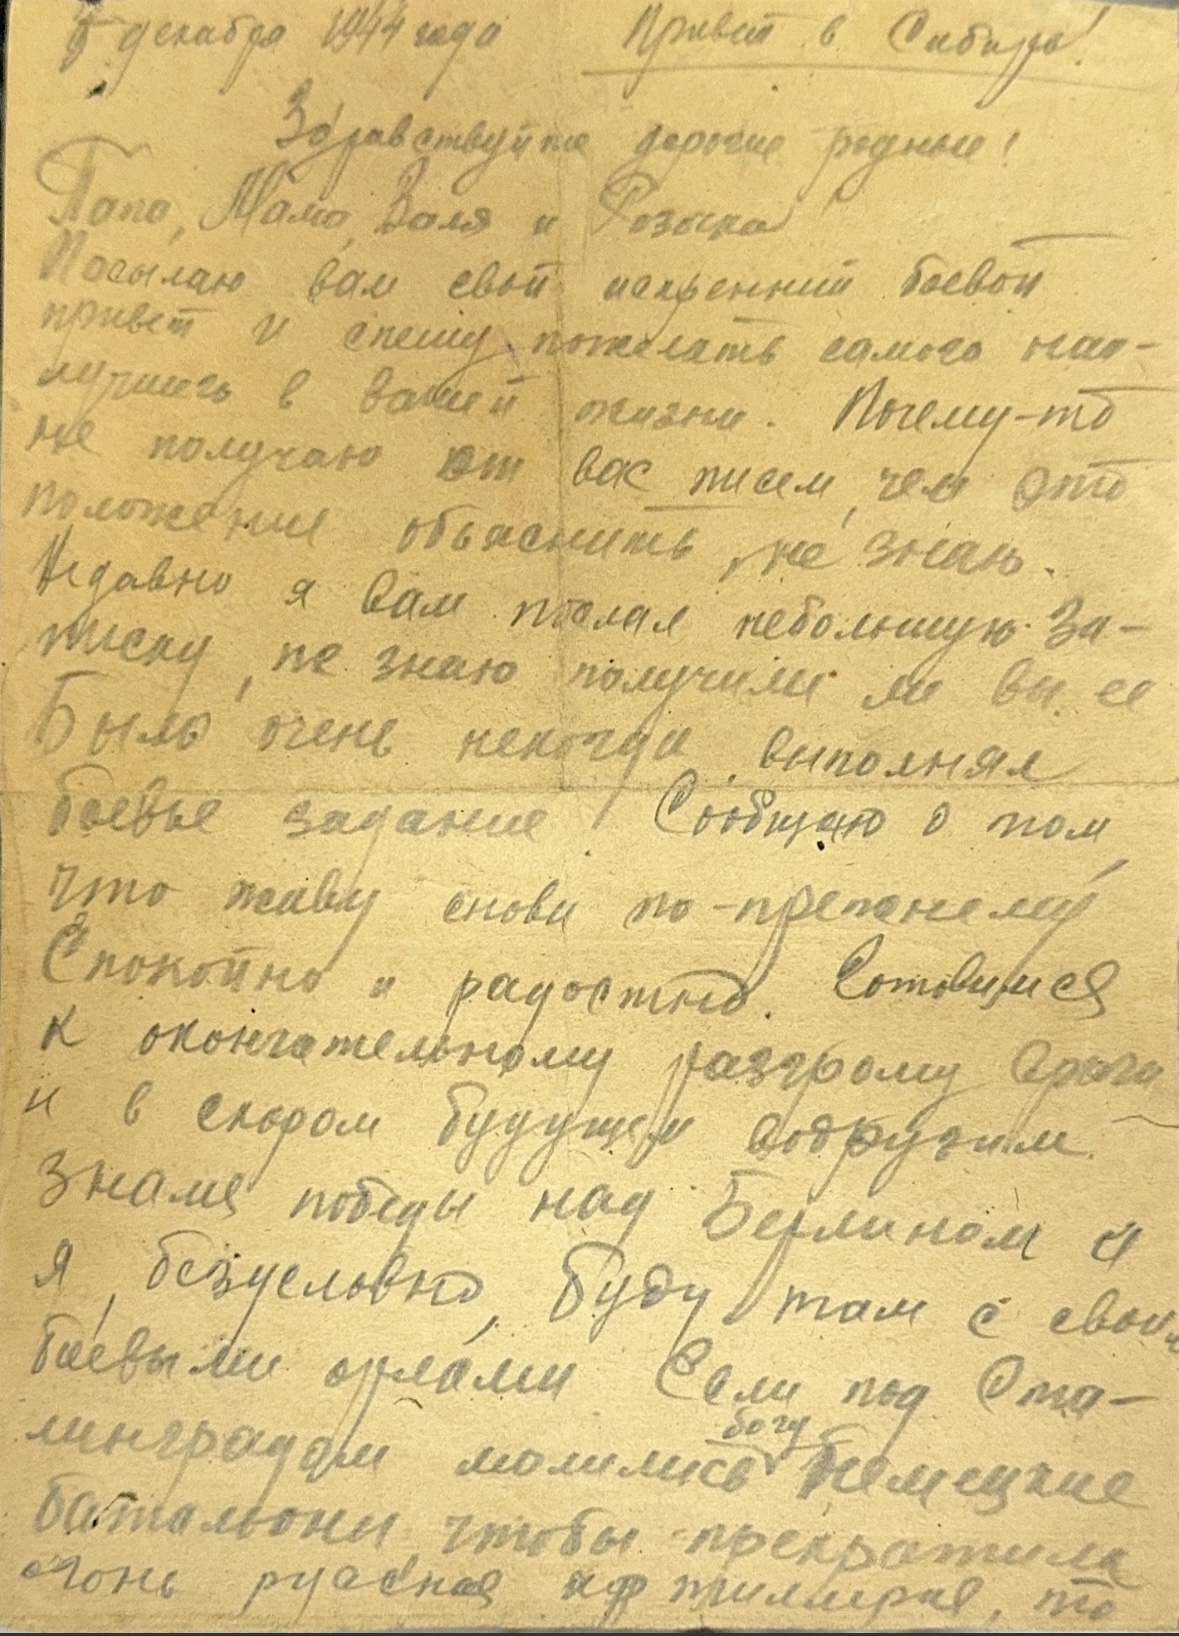 5 декабря 1944 года Привет в Сибирь!
Здравствуйте дорогие родные!
Папа, Мама, Валя и Розочка
Посылаю вам свой искренний боевой
привет и спешу пожелать самого наи-
лучшего в вашей жизни. Почему-то
не получаю от вас писем, чем это
положение объяснить, не знаю.
Недавно я вам послал небольшую за-
писку, не знаю получили ли вы ее
Было очень некогда, выполнял
боевые задание. Сообщаю о том,
что живу снова по-прежнему
Спокойно и радостно. Готовимся
к окончательному разгрому врага
и в скором будущем водрузим
знамя победы над Берлином и
я, безусловно, буду там с своим
боевыми орлами Если под Ста-
линградом молились богу немецкие
батальоны, чтобы прекратила
огонь русская артиллерия, то